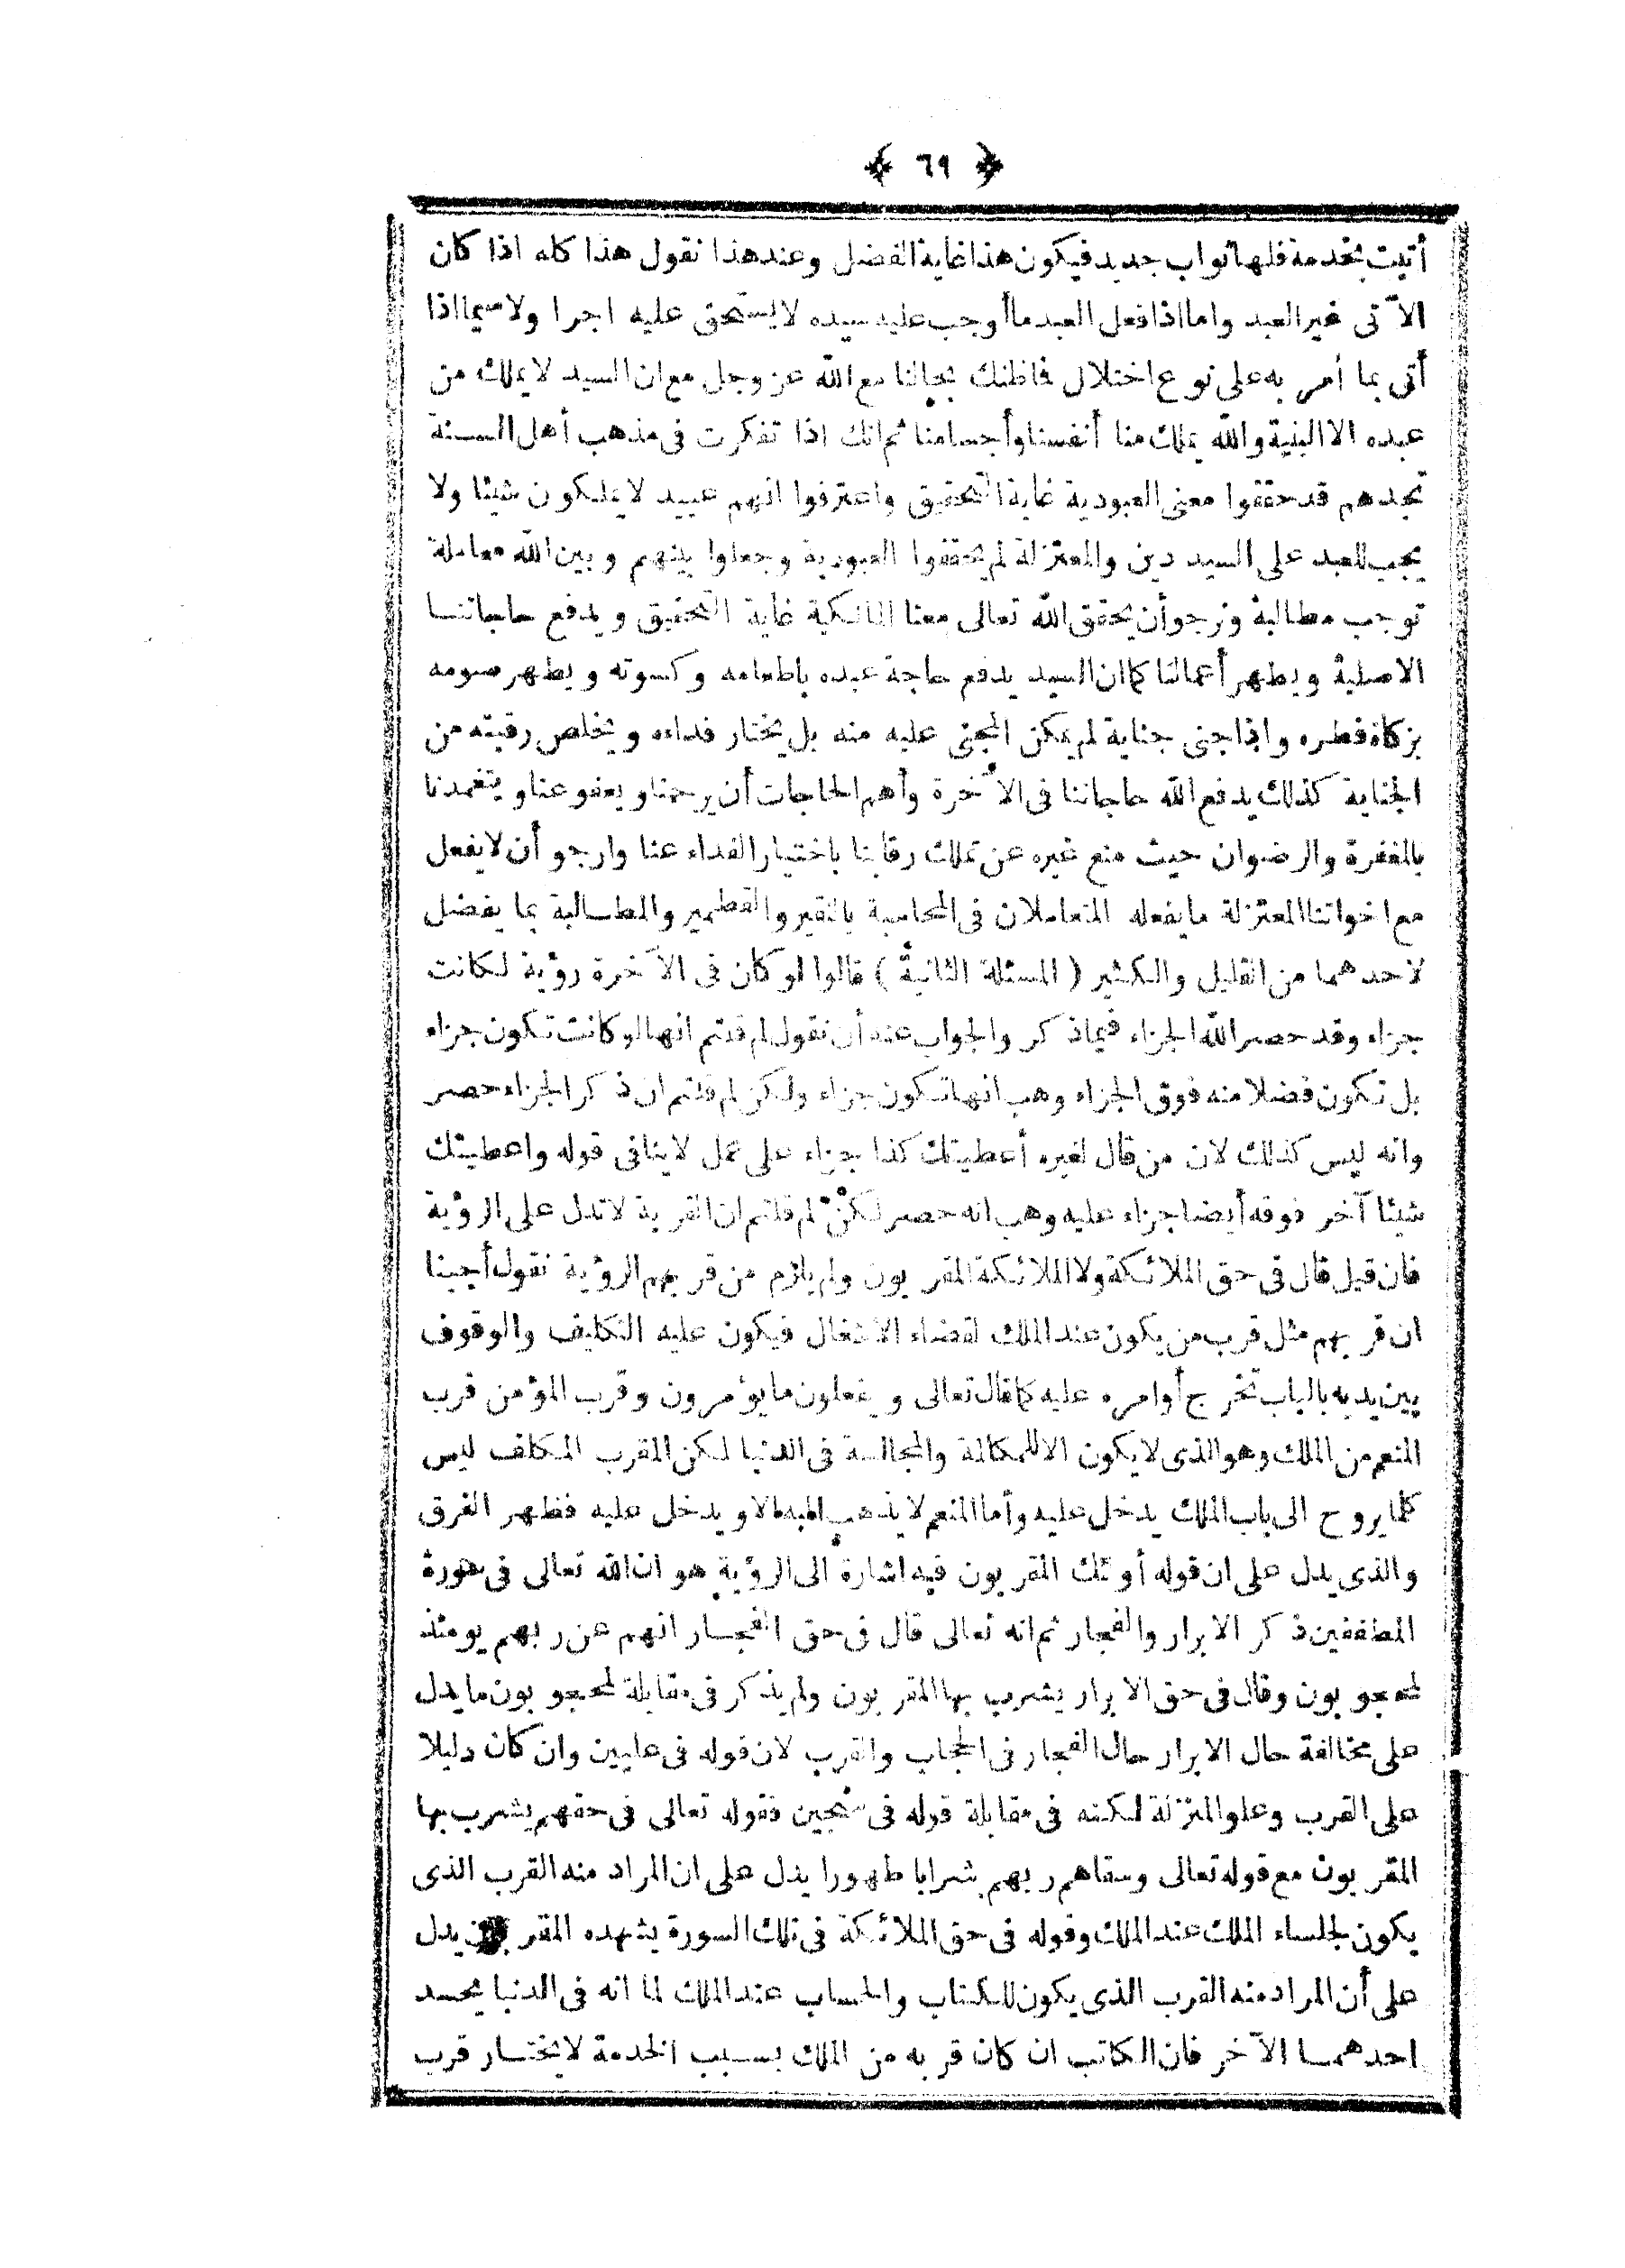 ﴿ ٦٩ ﴾
أتيت بخدمة فلها ثواب جديد فيكون هذا غاية الفضل وعند هذا نقول هذا كله اذا كان
الآتى غير العبد واما اذا فعل العبد ما أوجب عليه سيده لا يستحق عليه اجرا ولا سيما اذا
أتى بما أمر به على نوع اختلال فما ظنك بحالنا مع الله عز وجل مع ان السيد لا يملك من
عبده الا البنية والله يملك منا أنفسنا وأجسامنا ثم انك اذا تفكرت فى مذهب أهل السنة
تجدهم قد حققوا معنى العبودية غاية التحقيق واعترفوا انهم عبيد لا يملكون شيئا ولا
يجب للعبد على السيد دين والمعتزلة لم يحققوا العبودية وجعلوا بينهم وبين الله معاملة
توجب مطالبة ونرجو أن يحقق الله تعالى معنا المالكية غاية التحقيق ويدفع حاجاتنا
الاصلية ويطهر أعمالنا كما ان السيد يدفع حاجة عبده باطعامه وكسوته ويطهر صومه
بزكاة فطره واذا جنى جناية لم يمكن المجنى عليه منه بل يختار فداءه ويخلص رقبته من
الجناية كذلك يدفع الله حاجاتنا فى الآخرة وأهم الحاجات أن يرحمنا ويعفو عنا ويتغمدنا
بالمغفرة والرضوان حيث منع غيره عن تملك رقابنا باختيار الفداء عنا وارجو أن لا يفعل
مع اخواتنا المعتزلة ما يفعله المتعاملان فى المحاسبة بالنقير والقطمير والمطالبة بما يفضل
لاحدهما من القليل والكثير ( المسئلة الثانية ) قالوا لو كان فى الآخرة رؤية لكانت
جزاء وقد حصر الله الجزاء فيما ذكر والجواب عنه أن نقول لم قلتم انها لو كانت تكون جزاء
بل تكون فضلا منه فوق الجزاء وهب انها تكون جزاء ولكن لم قلتم ان ذكر الجزاء حصر
وانه ليس كذلك لان من قال لغيره أعطيتك كذا جزاء على عمل لا ينافى قوله واعطيتك
شيئا آخر فوقه أيضا جزاء عليه وهب انه حصر لكن لم قلتم ان القربة لا تدل على الرؤية
فان قيل قال فى حق الملائكة ولا الملائكة المقربون ولم يلزم من قربهم الرؤية نقول أجبنا
ان قربهم مثل قرب من يكون عند الملك لقضاء الاشغال فيكون عليه التكليف والوقوف
بين يديه بالباب تخرج أوامره عليه كما قال تعالى ويفعلون ما يؤمرون وقرب المؤمن قرب
المنعم من الملك وهو الذى لا يكون الا للمكالمة والمجالسة فى الدنيا لكن المقرب المكلف ليس
كلما يروح الى باب الملك يدخل عليه وأما المنعم لا يذهب اليه الا ويدخل عليه فظهر الفرق
والذى يدل على ان قوله أولئك المقربون فيه اشارة الى الرؤية هو ان الله تعالى فى سورة
المطففين ذكر الابرار والفجار ثم انه تعالى قال فى حق الفجار انهم عن ربهم يومئذ
لمحجوبون وقال فى حق الابرار يشرب بها المقربون ولم يذكر فى مقابلة لمحجوبون ما يدل
على مخالفة حال الابرار حال الفجار فى الحجاب والقرب لان قوله فى عليين وان كان دليلا
على القرب وعلو المنزلة لكنه فى مقابلة قوله فى سجين فقوله تعالى فى حقهم يشرب بها
المقربون مع قوله تعالى وسقاهم ربهم شرابا طهورا يدل على ان المراد منه القرب الذى
يكون لجلساء الملك عند الملك وقوله فى حق الملائكة فى تلك السورة يشهده المقربون يدل
على أن المراد منه القرب الذى يكون للكتاب والحساب عند الملك لما انه فى الدنيا يحسد
احدهما الآخر فان الكاتب ان كان قربه من الملك بسبب الخدمة لا يختار قرب